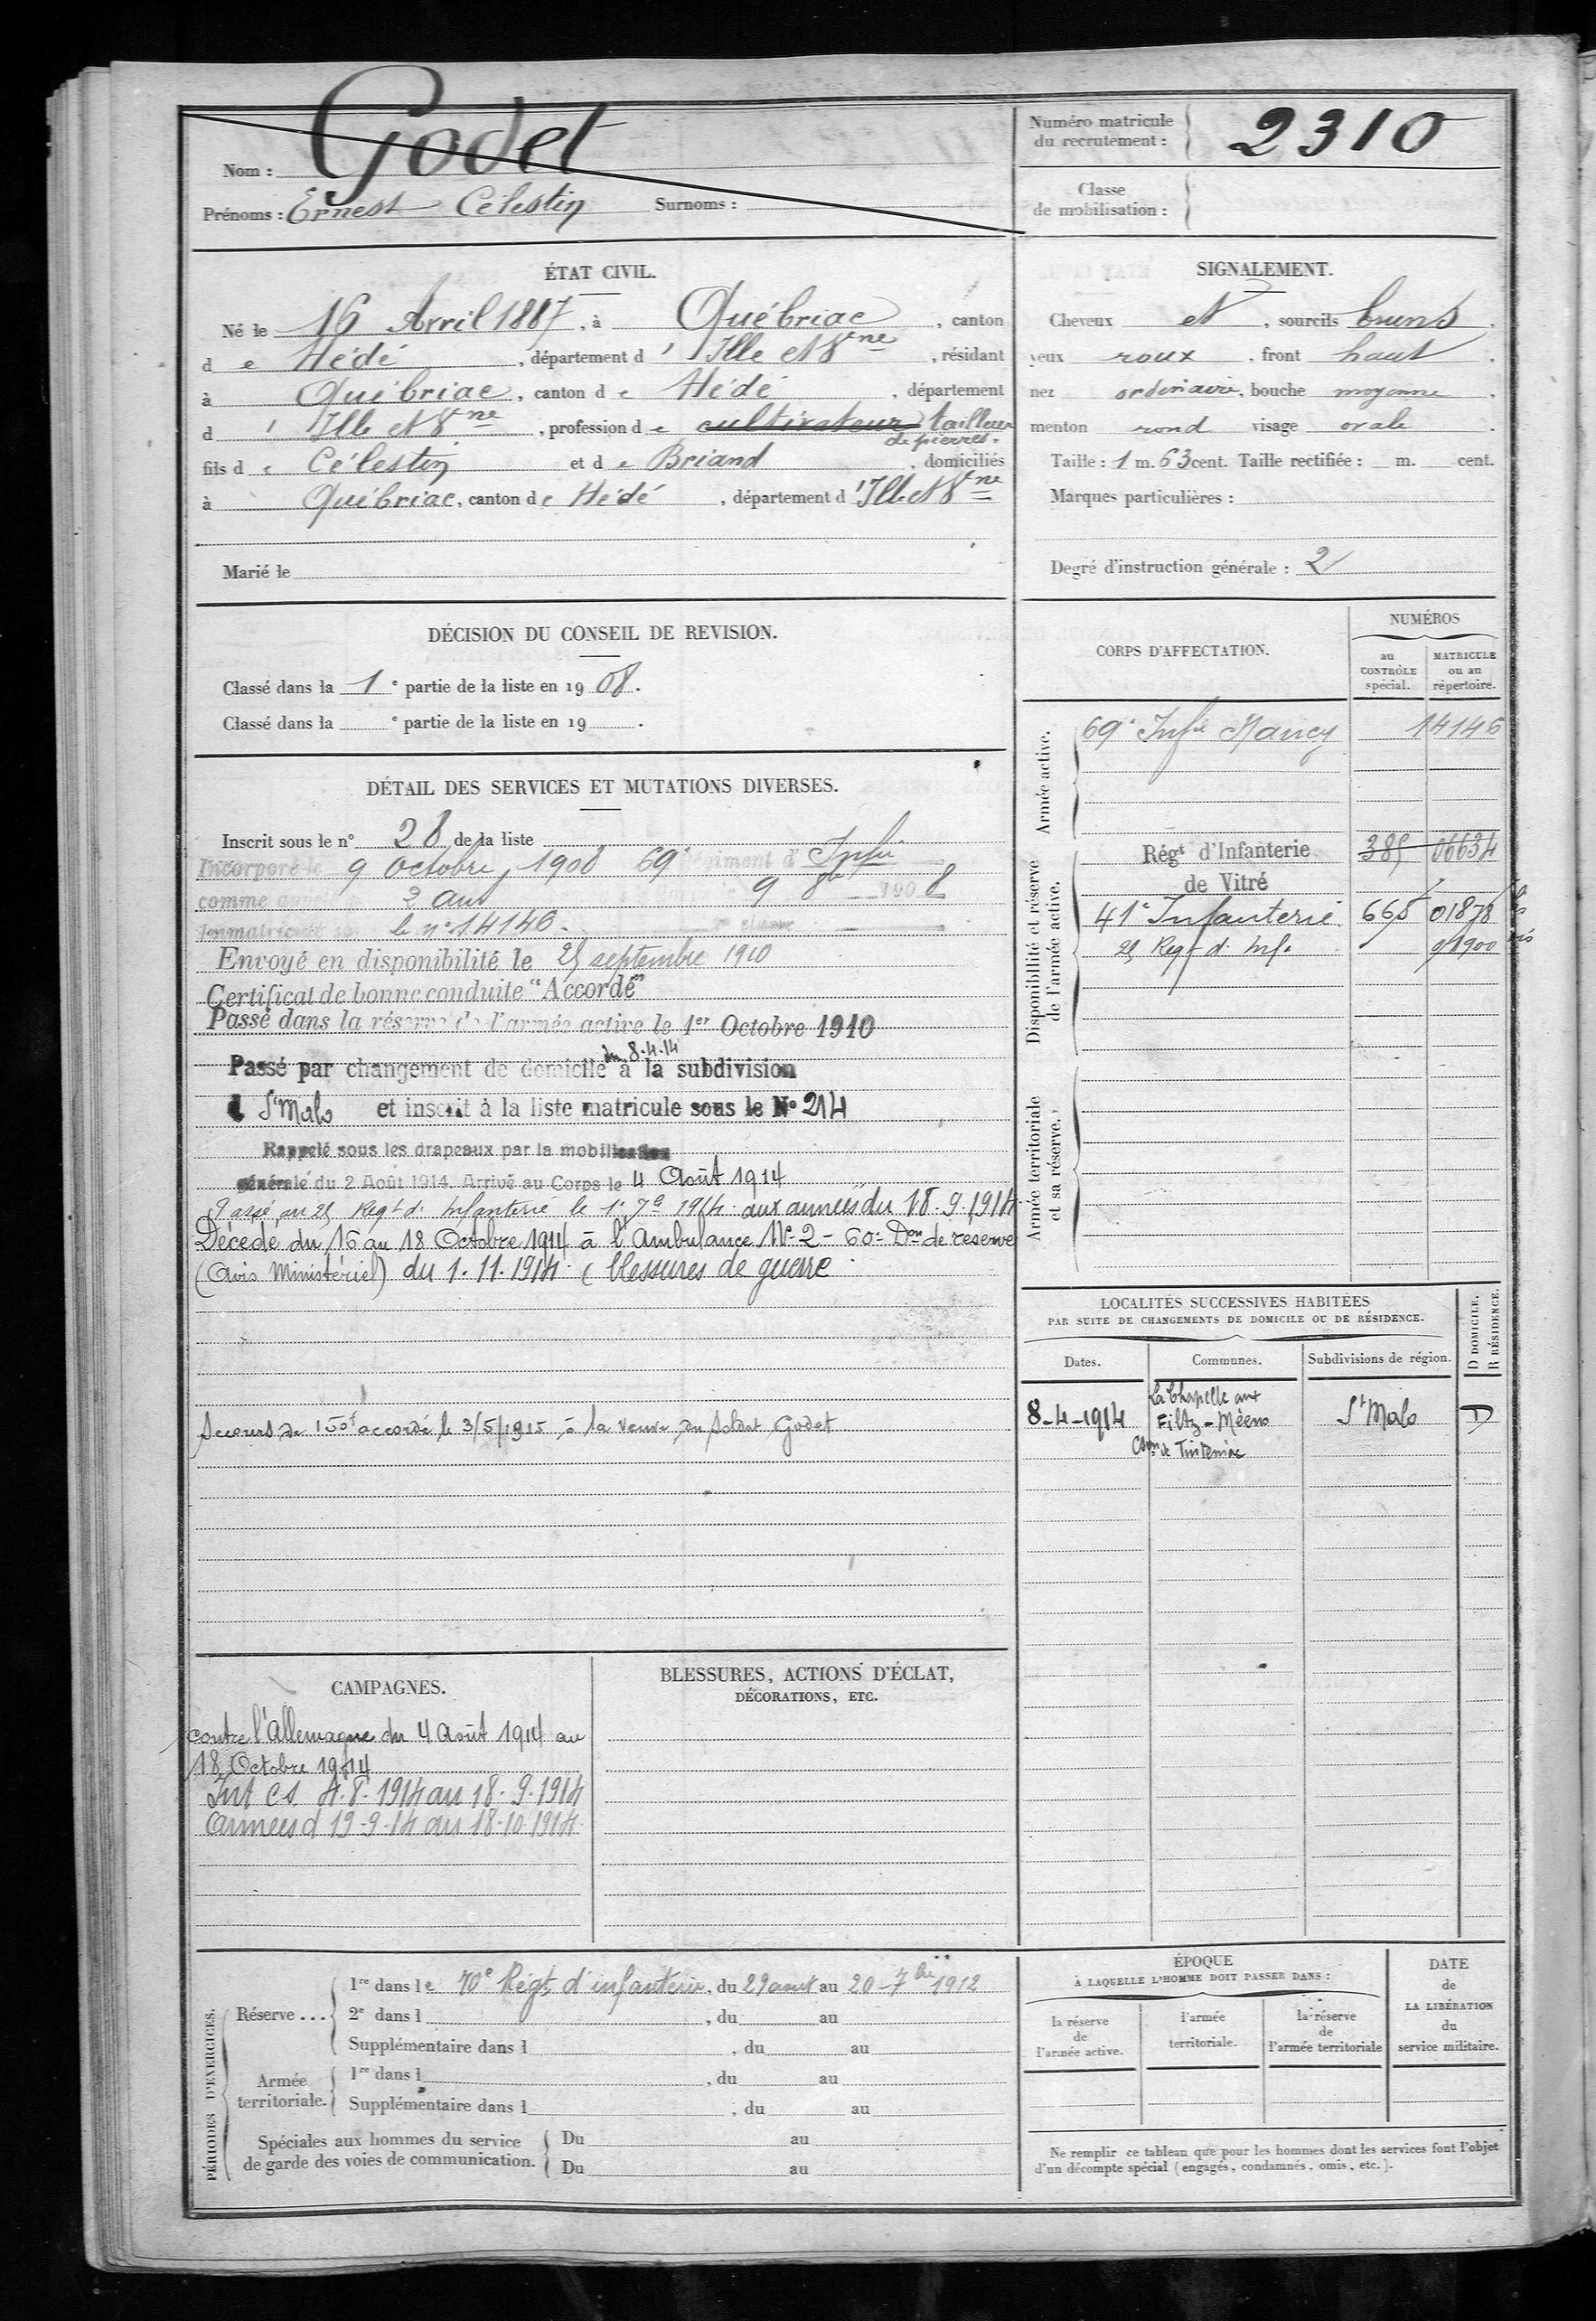 Nom : Godet
Prénoms : Ernest Célestin Surnoms :
Numéro matricule
du recrutement : 2310
Classe
de mobilisation :
ÉTAT CIVIL.
Né le 16 Avril 1887, à Québriac, canton
de Hédé, département d'Ille et Vne, résidant
à Québriac, canton de Hédé, département
d'Ille et Vne, profession de cultivateur tailleur
de pierres.
fils de Célestin et de Briand, domiciliés
à Québriac, canton de Hédé, département d'Ille et Vne
Marié le
SIGNALEMENT.
Cheveux et, sourcils bruns.
yeux roux, front haut.
nez ordinaire, bouche moyenne.
menton rond visage ovale.
Taille : 1 m. 63 cent. Taille rectifiée : m. cent.
Marques particulières :
Degré d'instruction générale : 2
DÉCISION DU CONSEIL DE REVISION.
Classé dans la 1e partie de la liste en 1908.
Classé dans la e partie de la liste en 19 .
DÉTAIL DES SERVICES ET MUTATIONS DIVERSES.
Inscrit sous le n° 28 de la liste
Incorporé le 9 octobre 1908 69 régiment d'Infie
comme 2 ans 9 8bre 1908
Immatriculé le n° 14146.
Envoyé en disponibilité le 25 septembre 1910
Certificat de bonne conduite "Accordé"
Passé dans la réserve de l'armée active le 1er Octobre 1910
du 8.4.14
Passé par changement de domicile à la subdivision
d St Malo et inscrit à la liste matricule sous le No 214
Rappelé sous les drapeaux par la mobilisation
générale du 2 Août 1914. Arrivé au Corps le 4 Août 1914
Passé au 25 Regt d'Infanterie le 1er 7e 1914. aux armées du 18.9.1914
Décédé du 16 au 18 Octobre 1914 à l'Ambulance No 2 - 60e Don de reserve
(Avis Ministériel) du 1.11.1914. (blessures de guerre
Secours de 150f accordé le 3/5/1915 à la veuve du soldat Godet
CORPS D'AFFECTATION.
NUMÉROS
au
CONTRÔLE
spécial.
MATRICULE
ou au
répertoire.
Armée active.
69e Infie Nancy 14146
Disponibilité et réserve
de l'armée active.
Régt d'Infanterie 385 06634
de Vitré
41e Infanterie 665 01878
25 Regt d'Inf. 01900
Armée territoriale
et sa réserve.
LOCALITÉS SUCCESSIVES HABITÉES
PAR SUITE DE CHANGEMENTS DE DOMICILE OU DE RÉSIDENCE.
D DOMICILE.
R RÉSIDENCE.
Dates. Communes. Subdivisions de région.
8-4-1914 La Chapelle aux
Filtz-Méens St Malo D
Cton de Tinteniac
CAMPAGNES.
contre l'Allemagne du 4 Août 1914 au
18 Octobre 1914
Int CS 4.8.1914 au 18.9.1914
armées d 19-9-14 au 18-10-1914
BLESSURES, ACTIONS D'ÉCLAT,
DÉCORATIONS, ETC.
PÉRIODES D'EXERCICES.
Réserve ...
1re dans le 70e Régt d'infanterie, du 29 aout au 20-7bre 1912
2e dans l , du au
Supplémentaire dans l , du au
Armée
territoriale.
1re dans l , du au
Supplémentaire dans l , du au
Spéciales aux hommes du service
de garde des voies de communication.
Du au
Du au
ÉPOQUE
À LAQUELLE L'HOMME DOIT PASSER DANS :
la réserve
de
l'armée active.
l'armée
territoriale.
la réserve
de
l'armée territoriale
DATE
de
LA LIBÉRATION
du
service militaire.
Ne remplir ce tableau que pour les hommes dont les services font l'objet
d'un décompte spécial (engagés, condamnés, omis, etc.).